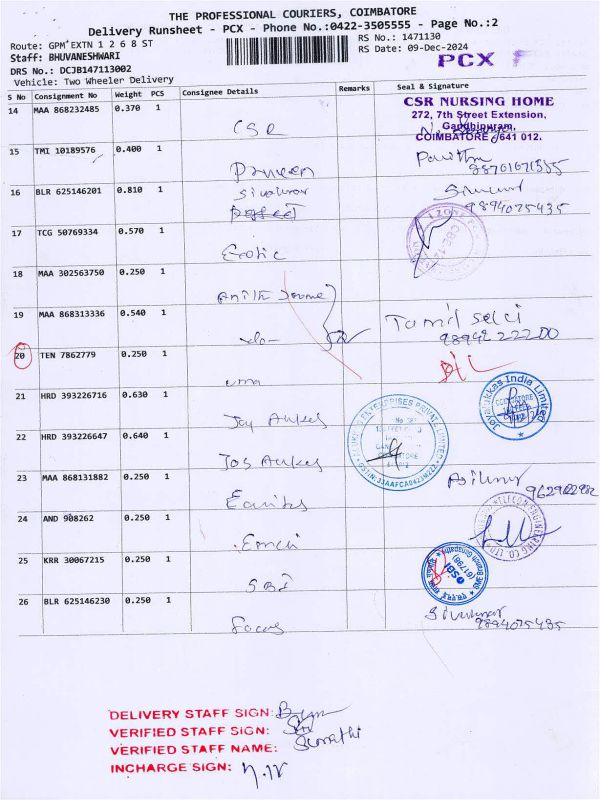 THE PROFESSIONAL COURIERS, COIMBATORE
Delivery Runsheet - PCX - Phone No.:0422-3505555 - Page No.:2
Route: GPM EXTN 1 2 6 8 ST
RS No.: 1471130
Staff: BHUVANESHWARI
RS Date: 09-Dec-2024
PCX
DRS No.: DCJB147113002
Vehicle: Two Wheeler Delivery
S No Consignment No Weight PCS Consignee Details Remarks Seal & Signature
14 MAA 868232485 0.370 1 CSR
CSR NURSING HOME
272, 7th Street Extension,
Gandhipuram,
COIMBATORE - 641 012.
15 TMI 10189576 0.400 1 Praveen
16 BLR 625146201 0.810 1 Sivakumar
9894075435
17 TCG 50769334 0.570 1 Exotic
18 MAA 302563750 0.250 1
19 MAA 868313336 0.540 1 -do- Tamil Selvi
20 TEN 7862779 0.250 1 uma
21 HRD 393226716 0.630 1 Joy Alukas
Joyalukkas India Limited
22 HRD 393226647 0.640 1 Jos Alukas
ENTERPRISES PRIVATE LIMITED
23 MAA 868131882 0.250 1 Equitas
24 AND 908262 0.250 1
25 KRR 30067215 0.250 1 SBI
SBI
26 BLR 625146230 0.250 1 Focus Sivakumar
9894075435
DELIVERY STAFF SIGN:
VERIFIED STAFF SIGN:
VERIFIED STAFF NAME: Sumathi
INCHARGE SIGN: